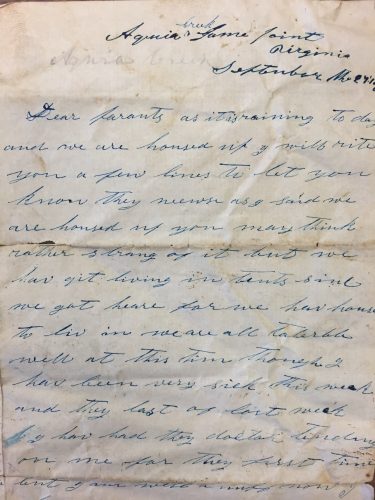 Aquia creek & Same point
Virginia
September the 29
Aquia Creek
Dear parants as it is raining to day
and we are housed up y will rite
you a few lines to let you
know they neewse as y said we
are housed up you may think
rather strang of it but we
hav git living in tents sinc
we got heare for we hav house
to liv in we are all tolerble
well at this tim though y
has been very sick this week
and they last of last week
y hav had they doctor tending
on me for they first time
but y am